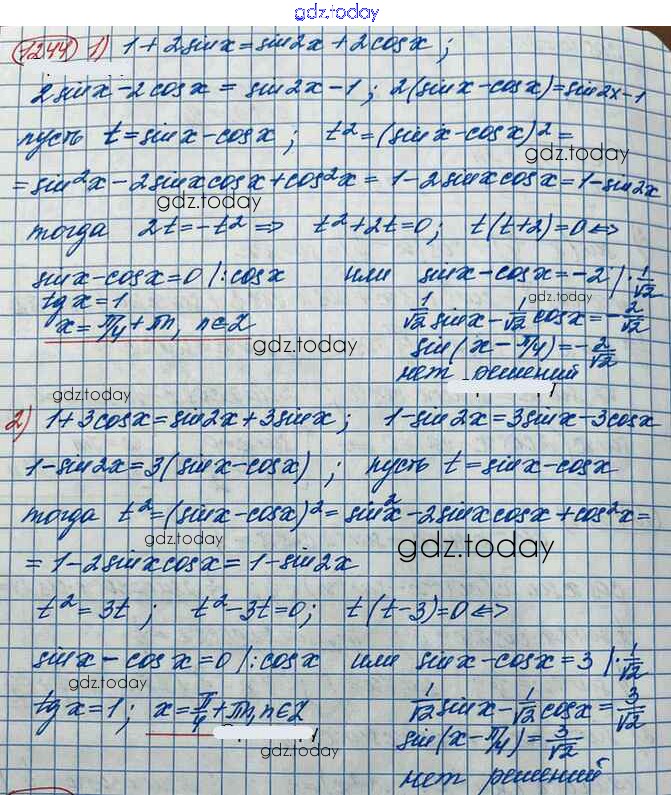 gdz.today
1244 1) 1+2sinx=sin2x+2cosx;
2sinx-2cosx=sin2x-1; 2(sinx-cosx)=sin2x-1
пусть t=sinx-cosx; t²=(sinx-cosx)²=
gdz.today
=sin²x-2sinxcosx+cos²x=1-2sinxcosx=1-sin2x
gdz.today
тогда 2t=-t² => t²+2t=0; t(t+2)=0<=>
sinx-cosx=0 |:cosx или sinx-cosx=-2 |·1/√2
tgx=1
gdz.today
1/√2 sinx-1/√2 cosx=-2/√2
x=π/4+πn, n∈Z
gdz.today
sin(x-π/4)=-2/√2
нет решений
gdz.today
2) 1+3cosx=sin2x+3sinx; 1-sin2x=3sinx-3cosx
1-sin2x=3(sinx-cosx); пусть t=sinx-cosx
тогда t²=(sinx-cosx)²=sin²x-2sinxcosx+cos²x=
gdz.today
gdz.today
=1-2sinxcosx=1-sin2x
t²=3t; t²-3t=0; t(t-3)=0<=>
sinx-cosx=0 |:cosx или sinx-cosx=3 |·1/√2
gdz.today
tgx=1; x=π/4+πn, n∈Z
1/√2 sinx-1/√2 cosx=3/√2
gdz.today
sin(x-π/4)=3/√2
нет решений